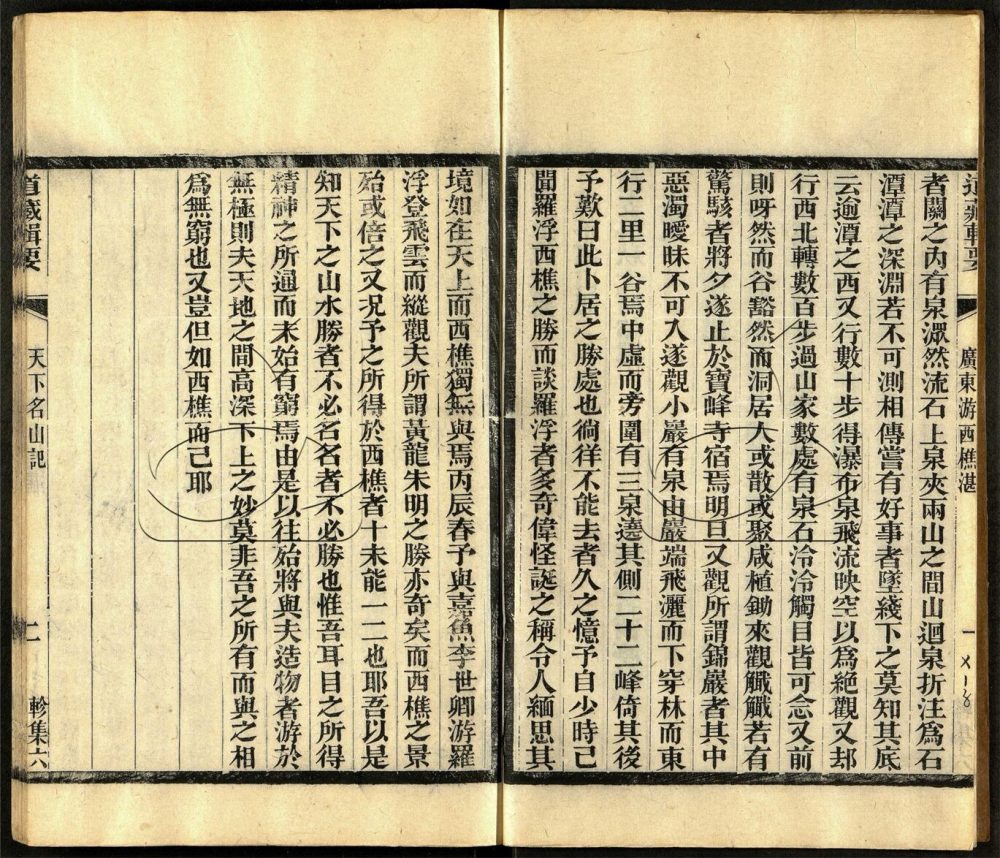 道藏輯要
廣東游西樵湛
一
者闢之內有泉瀠然流石上泉夾兩山之間山迴泉折注爲石
潭潭之深淵若不可測相傳嘗有好事者墜綫下之莫知其底
云逾潭之西又行數十步得瀑布泉飛流映空以爲絕觀又却
行西北轉數百步過山家數處有泉石泠泠觸目皆可念又前
則呀然而谷豁然而洞居人或散或聚咸植鋤來觀觺觺若有
驚駭者將夕遂止於寶峰寺宿焉明旦又觀所謂錦巖者其中
惡濁曖昧不可入遂觀小巖有泉由巖端飛灑而下穿林而東
行二里一谷焉中虛而旁圍有三泉遶其側二十二峰倚其後
予歎曰此卜居之勝處也徜徉不能去者久之憶予自少時已
聞羅浮西樵之勝而談羅浮者多奇偉怪誕之稱令人緬思其
境如在天上而西樵獨無與焉丙辰春予與嘉魚李世卿游羅
浮登飛雲而縱觀夫所謂黃龍朱明之勝亦奇矣而西樵之景
殆或倍之又況予之所得於西樵者十未能一二也耶吾以是
知天下之山水勝者不必名名者不必勝也惟吾耳目之所得
精神之所通而未始有窮焉由是以往殆將與夫造物者游於
無極則夫天地之間高深下上之妙莫非吾之所有而與之相
爲無窮也又豈但如西樵而已耶
道藏輯要
天下名山記
二
軫集六